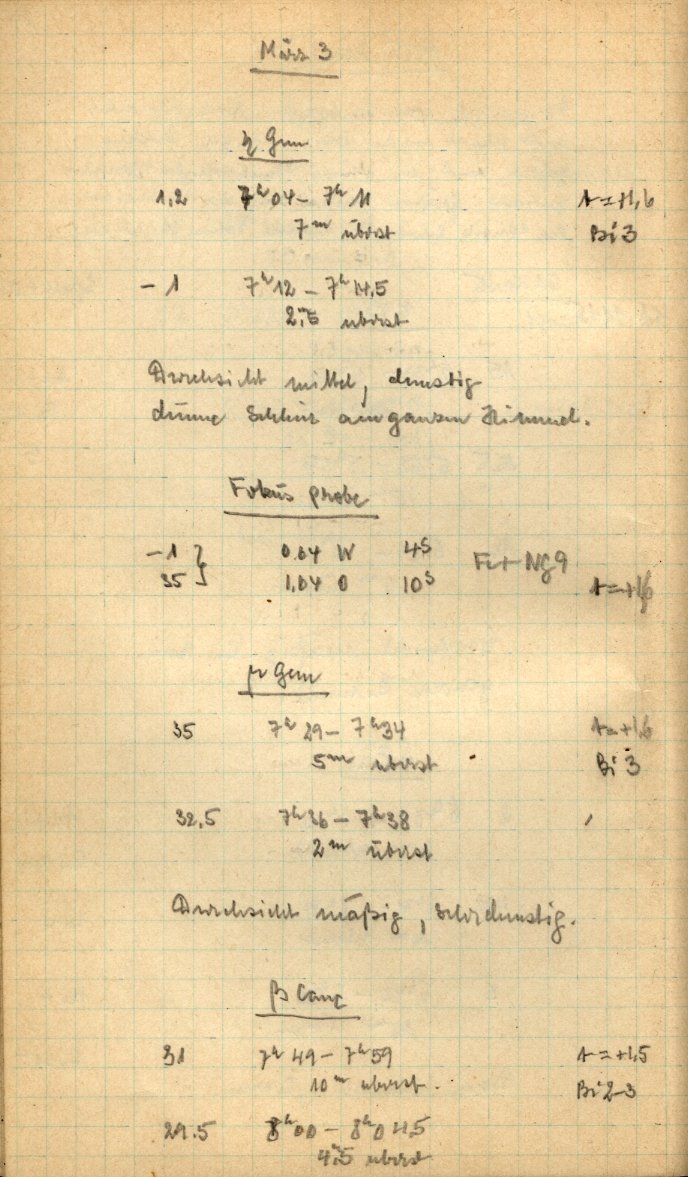 März 3
η Gem
1,2 7h 04 – 7h 11 t=+1,6
7m überst Bi 3
– 1 7h 12 – 7h 14,5
2m,5 überst
Durchsicht mittel, dunstig
dünne am ganzen Himmel.
Fokusprobe
–1 } 0.64 W 4s Fe + NG9
35 } 1,04 O 10s t=+1,6
μ Gem
35 7h 29 – 7h 34 t=+1,6
5m überst Bi 3
32,5 7h 36 – 7h 38 '
2m überst
Durchsicht mäßig, sehr dunstig.
β Canc
31 7h 49 – 7h 59 t=+1,5
10m überst. Bi 2-3
29.5 8h 00 – 8h 04,5
4m,5 überst